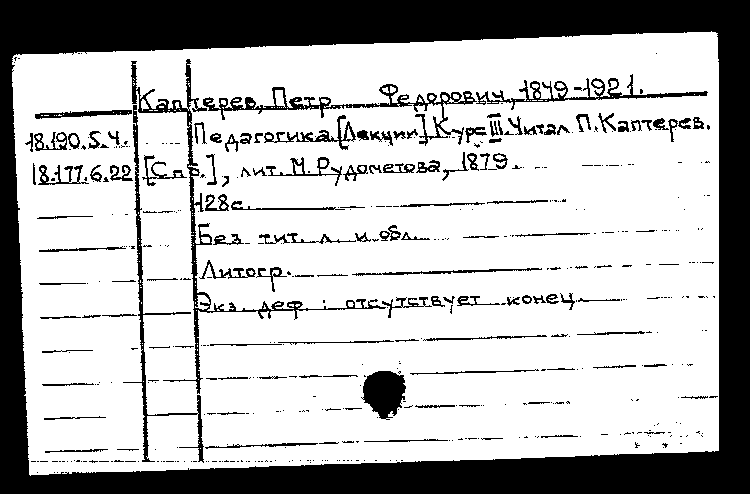 Каптерев, Петр Федорович, 1849-1921.
18.190.5.4. Педагогика [Лекции] Курс III. Читал П. Каптерев.
18.177.6.22 [Спб.], лит. М. Рудометова, 1879.
128с.
Без тит. л. и обл.
Литогр.
Экз. деф.: отсутствует конец.